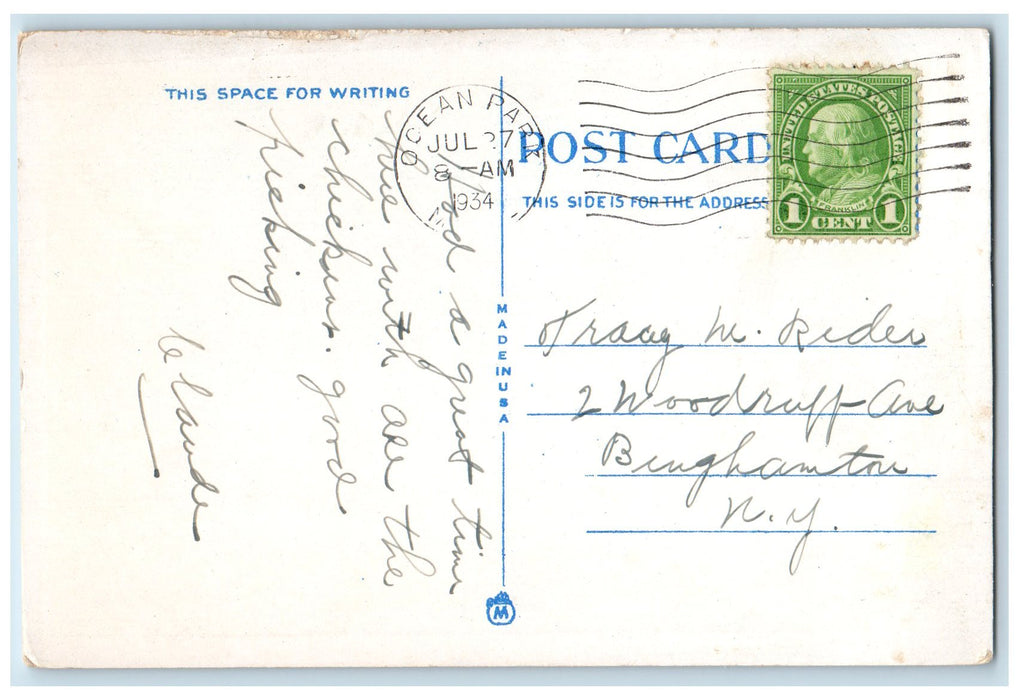 THIS SPACE FOR WRITING
Had a great time
here with all the
chickens. good
picking
Claude
OCEAN PARK
JUL 27
8 - AM
1934
M
POST CARD
THIS SIDE IS FOR THE ADDRESS
UNITED STATES POSTAGE
FRANKLIN
1 CENT 1
MADE IN USA
Tracy M. Rider
2 Woodruff Ave
Binghamton
N.Y.
M